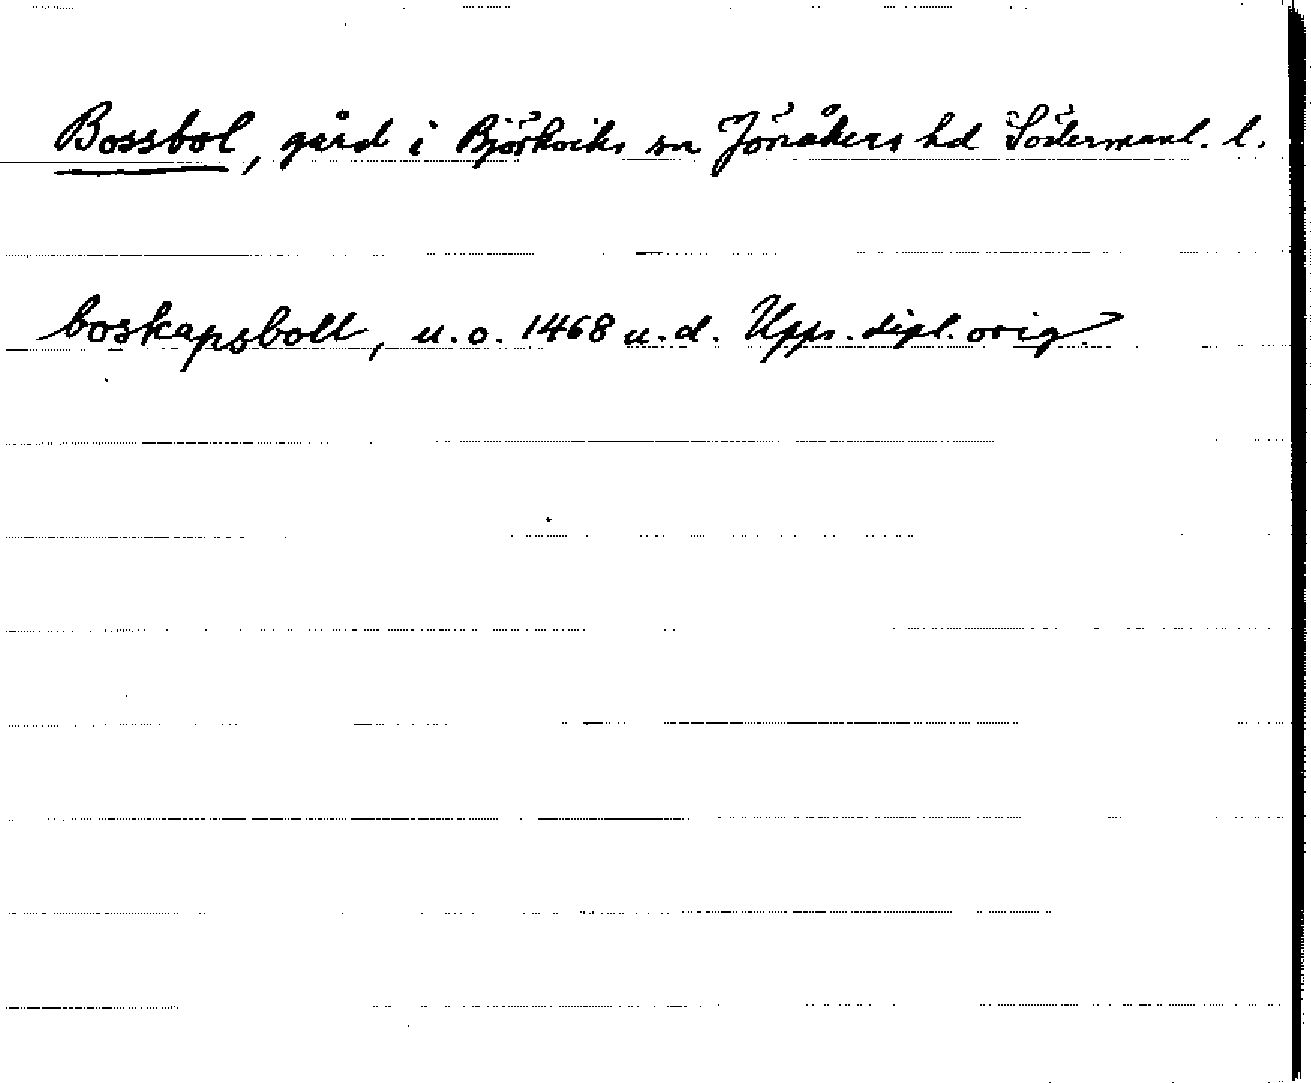 Bossbol, gård i Björkviks sn Jönåkers hd Södermanl. l.
boskapsbolt, u.o. 1468 u.d. Upps. dipl. orig.